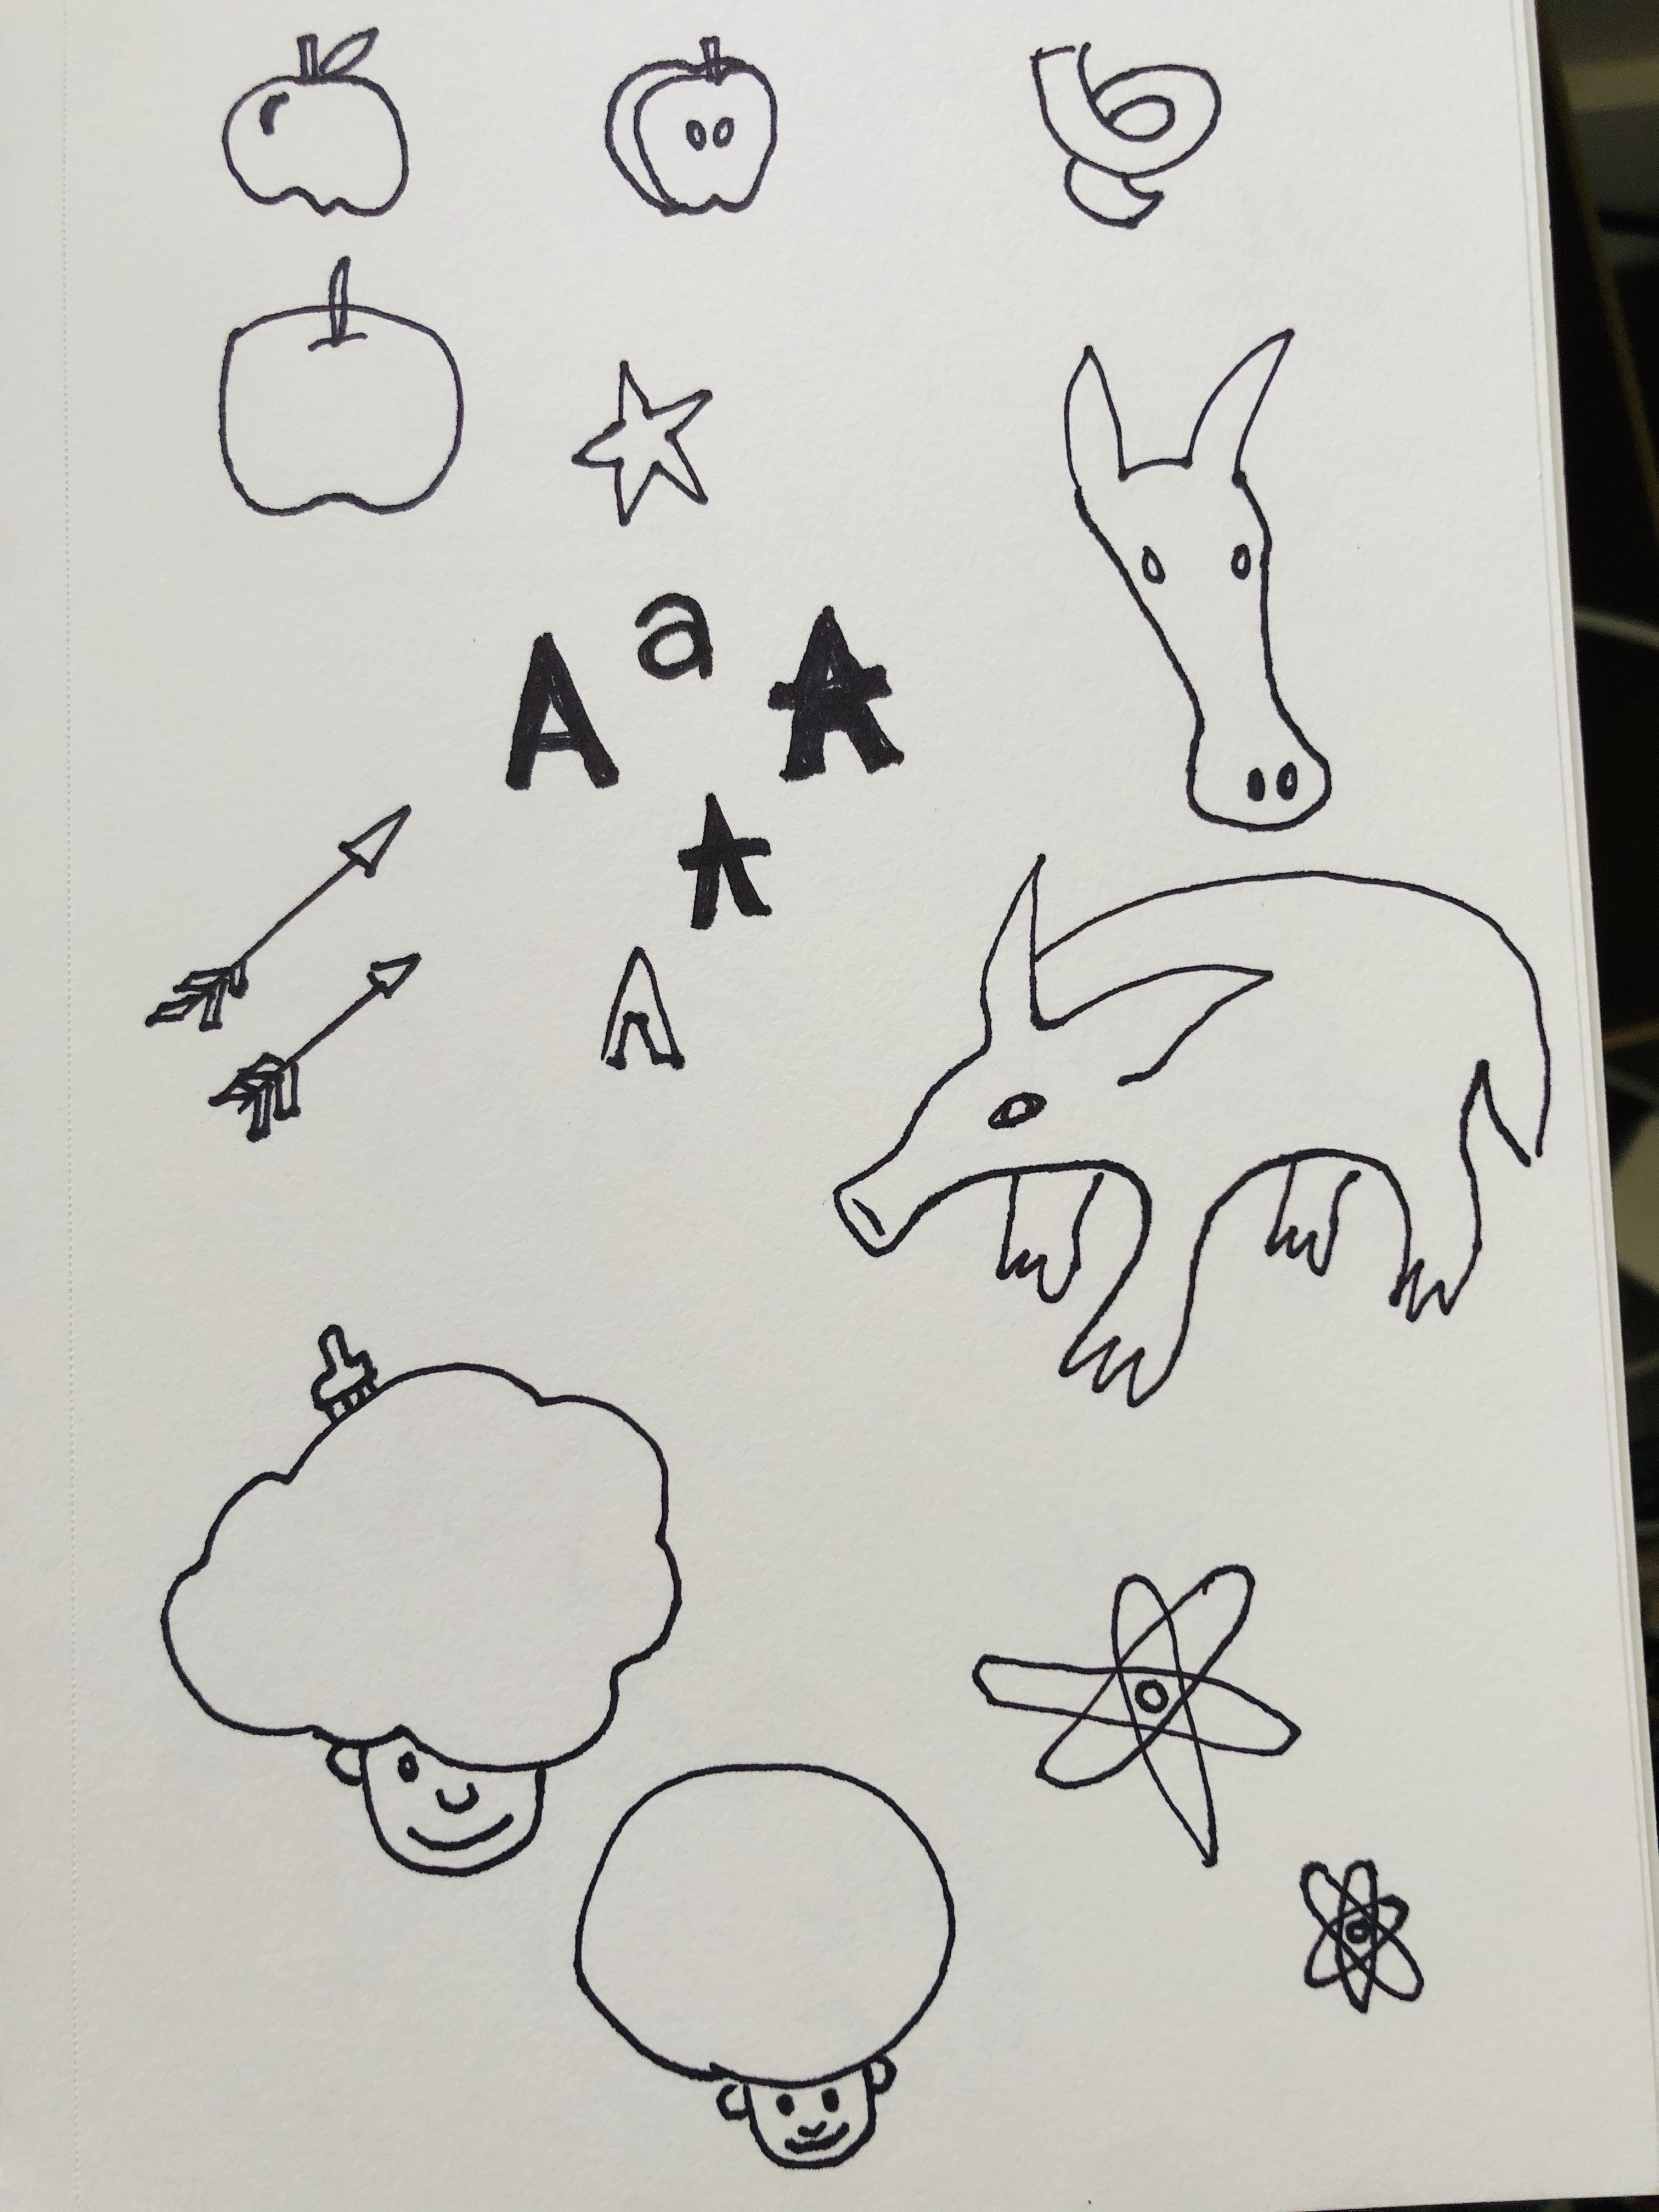 A a A
A
A